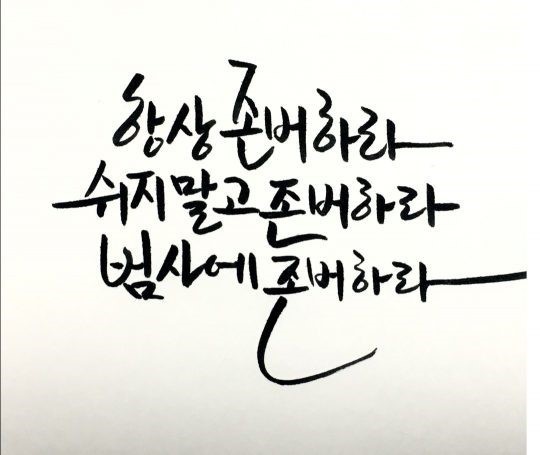 항상 존버하라
쉬지말고 존버하라
범사에 존버하라